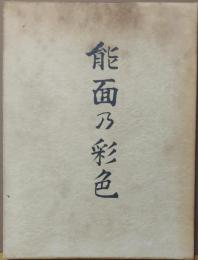 能面乃彩色